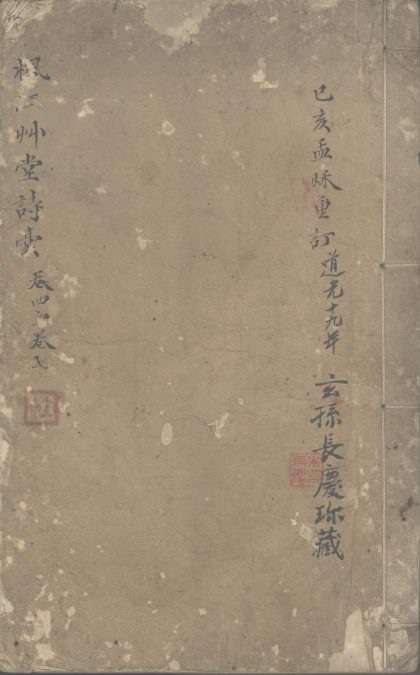 己亥孟秌重訂道光十九年
玄孫長慶珎藏
楓江艸堂詩稾卷四至卷七